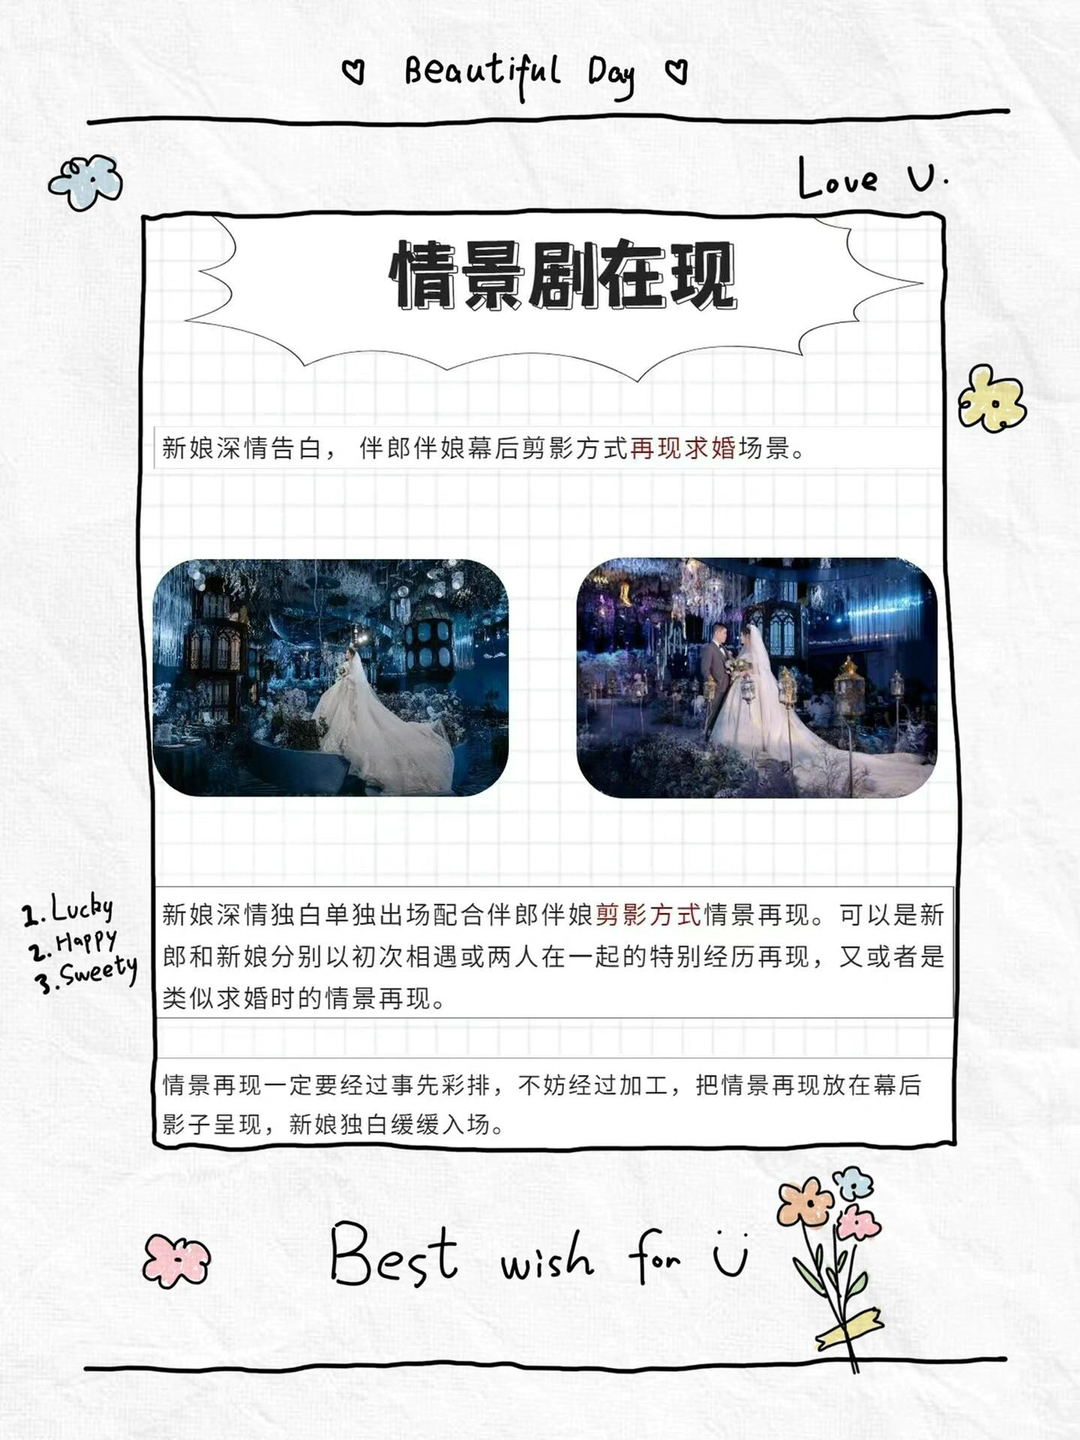 ♡ Beautiful Day ♡
Love U.
情景剧在现
新娘深情告白， 伴郎伴娘幕后剪影方式再现求婚场景。
新娘深情独白单独出场配合伴郎伴娘剪影方式情景再现。可以是新
郎和新娘分别以初次相遇或两人在一起的特别经历再现，又或者是
类似求婚时的情景再现。
1. Lucky
2. Happy
3. Sweety
情景再现一定要经过事先彩排，不妨经过加工，把情景再现放在幕后
影子呈现，新娘独白缓缓入场。
Best wish for Ü